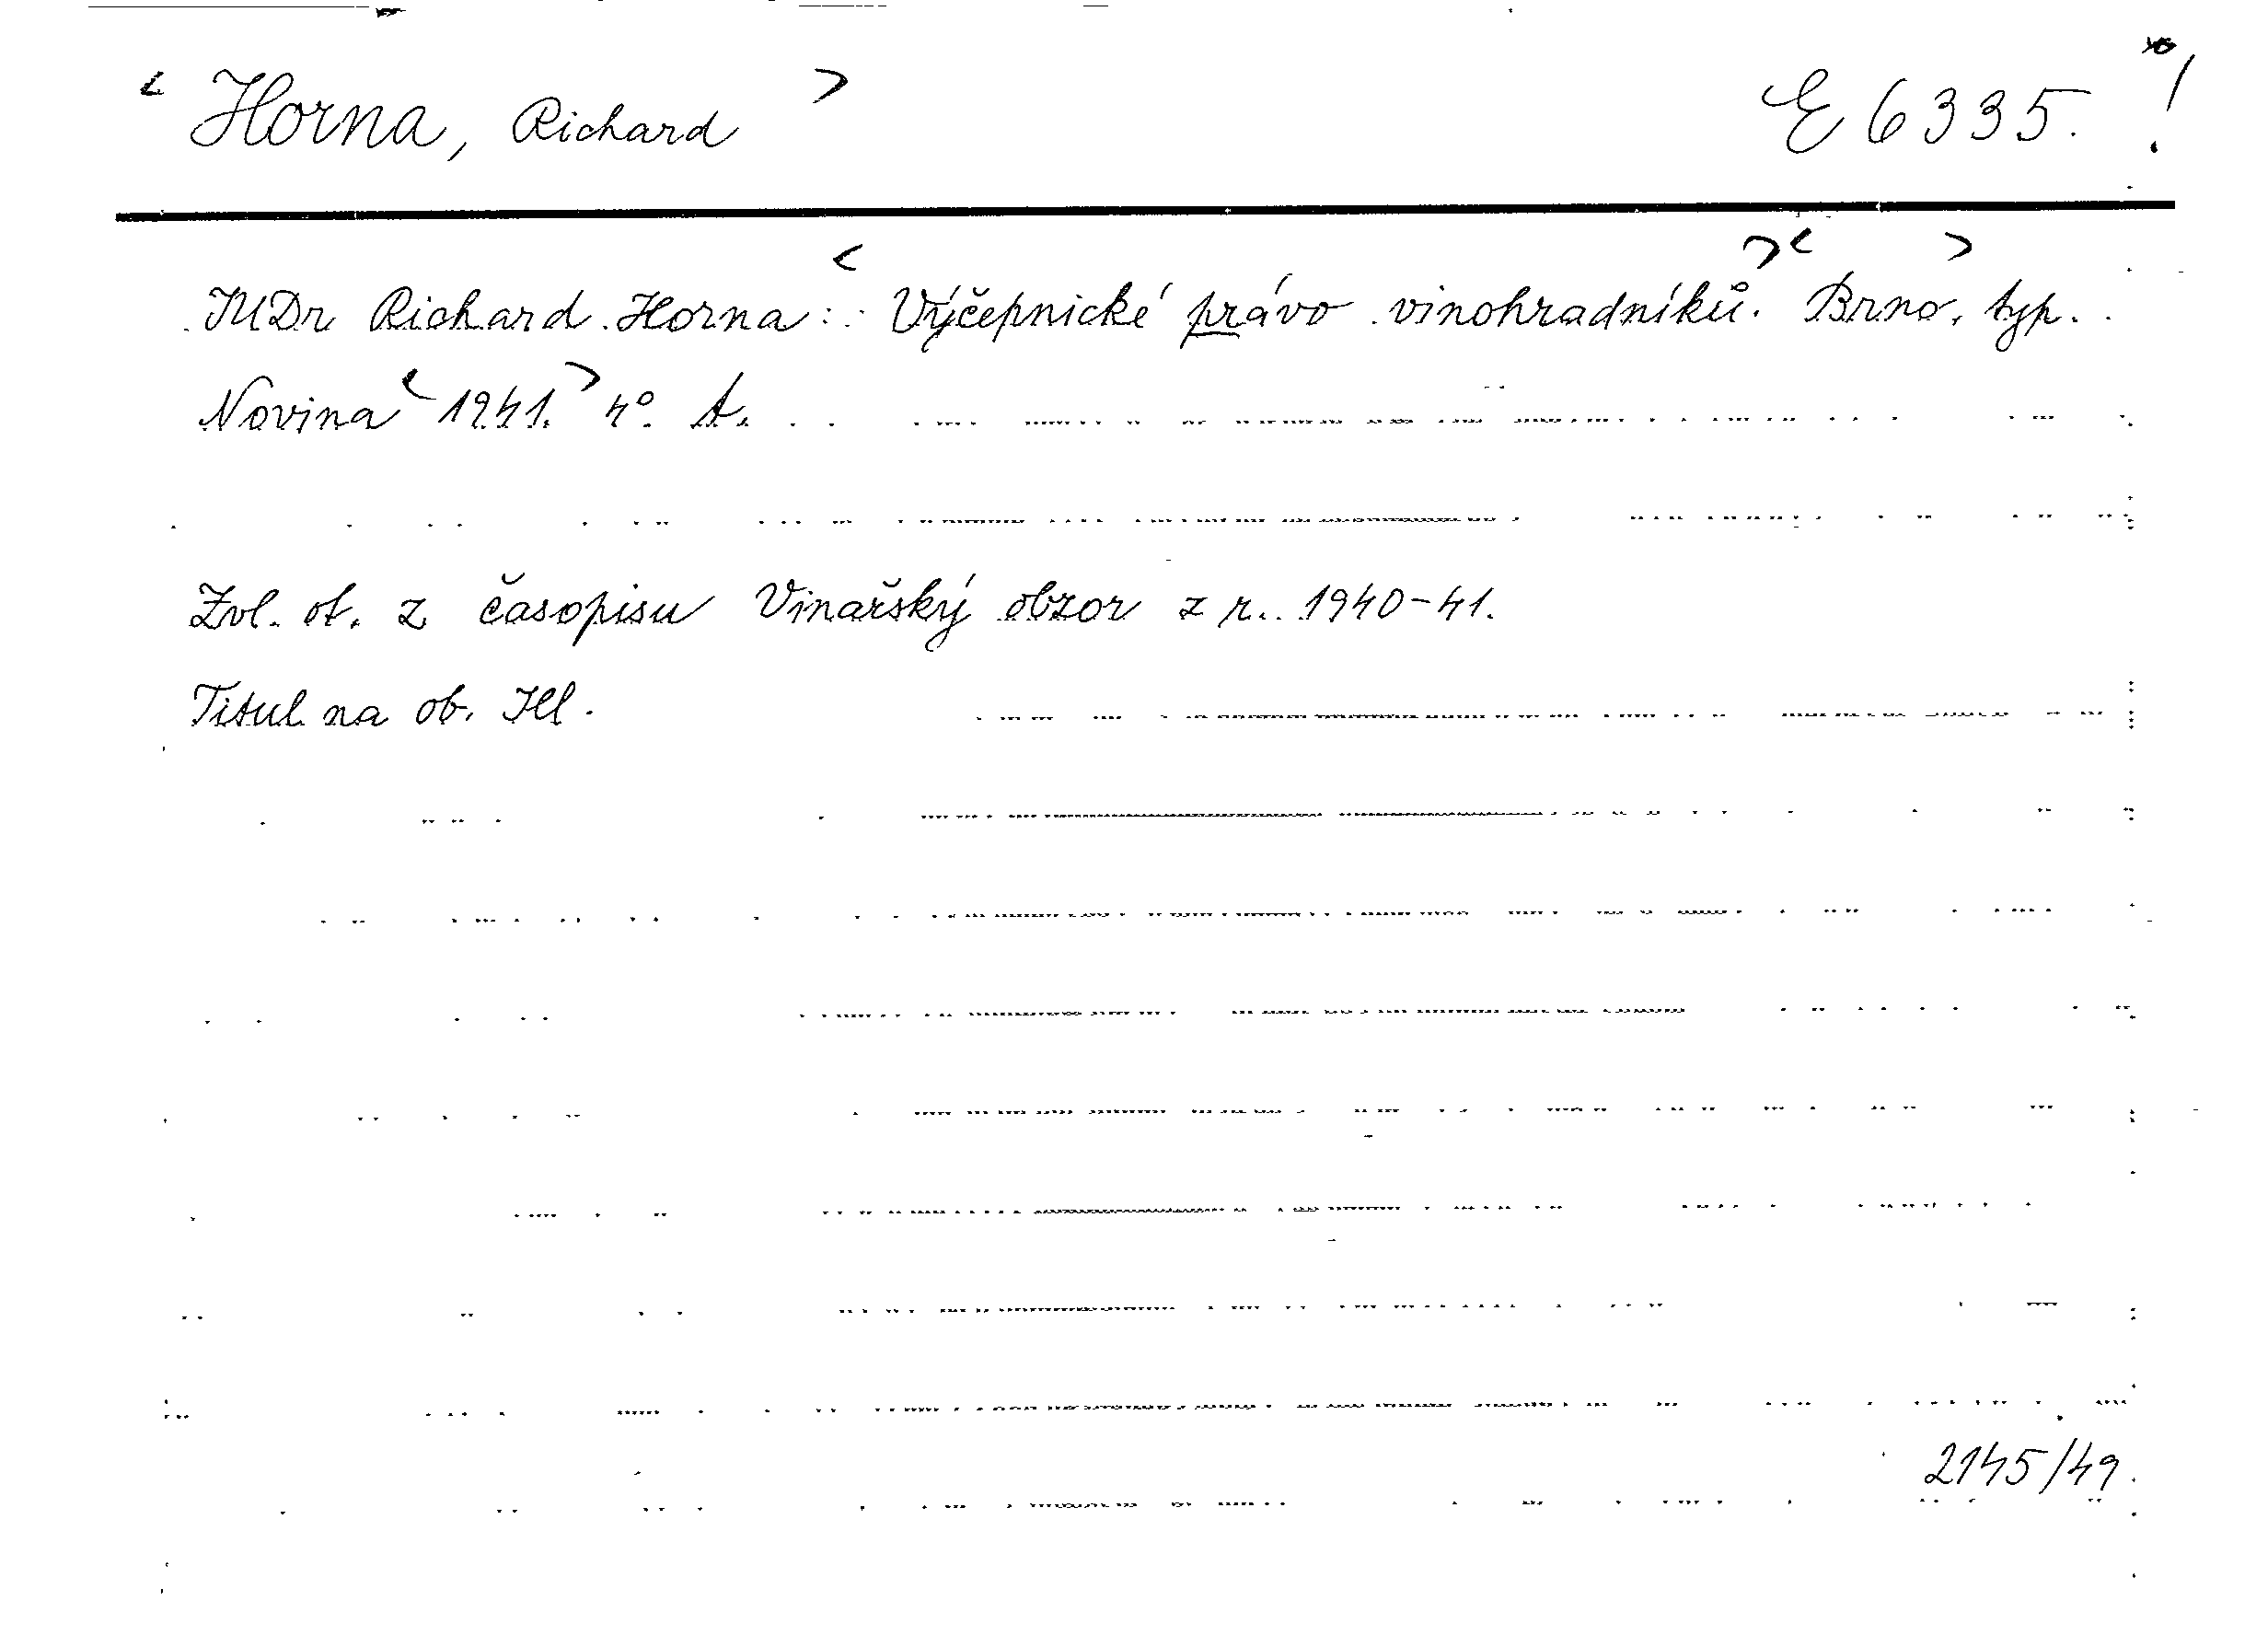 < Horna, Richard > E 6335. !
JUDr Richard Horna: < Výčepnické právo vinohradníků. > < Brno, > typ.
Novina < 1941. > 4º. A.
Zvl. ot. z časopisu Vinařský obzor z r. 1940-41.
Titul na ob. Ill.
2145/49.